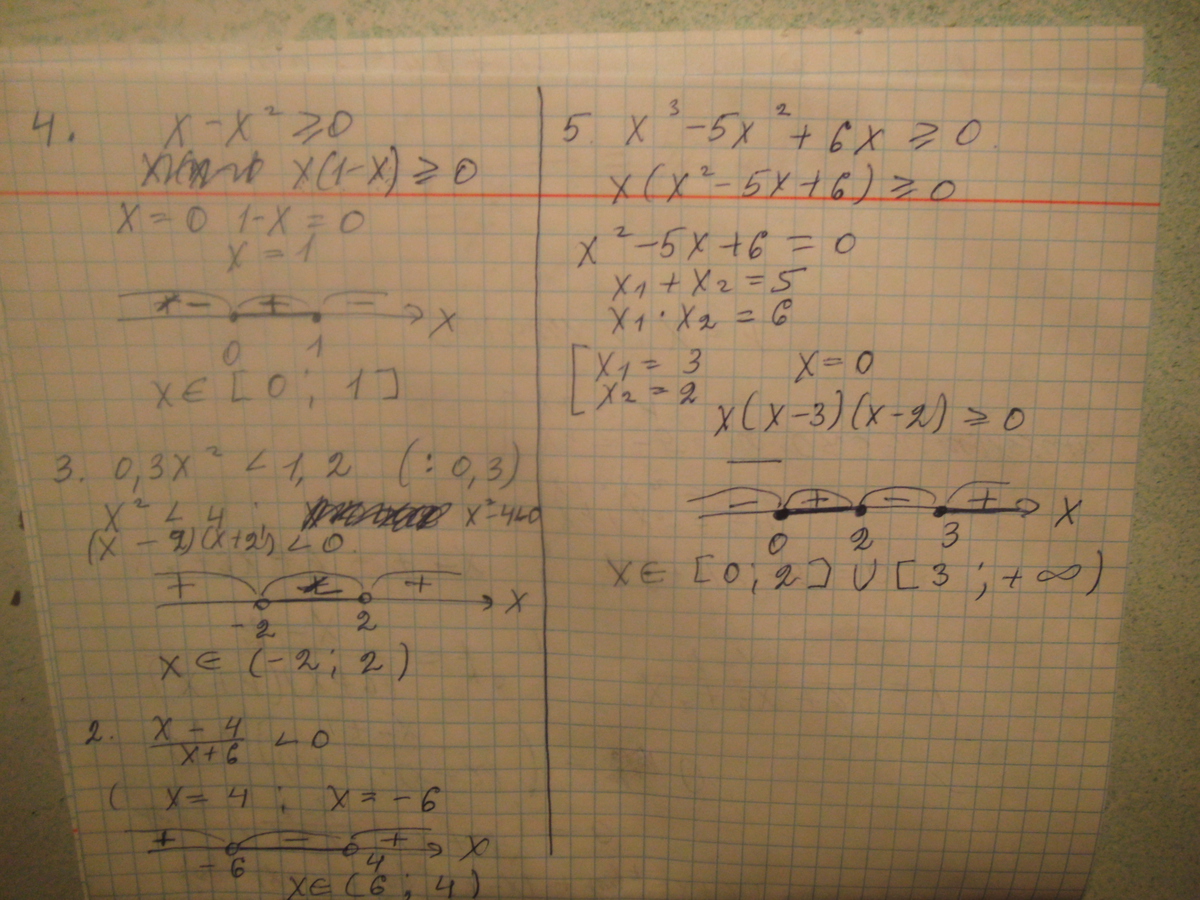 4. x - x² ≥ 0
x(1-x) ≥ 0
x = 0 1-x = 0
x = 1
- + - x
0 1
x ∈ [0; 1]
3. 0,3x² < 1,2 (: 0,3)
x² < 4 ; x²-4<0
(x - 2)(x+2) < 0.
+ - + x
-2 2
x ∈ (-2; 2)
2. \frac{x - 4}{x+6} < 0
( x = 4 ; x = -6
+ - + x
-6 4
x ∈ (6; 4)
5. x³ - 5x² + 6x ≥ 0.
x(x² - 5x + 6) ≥ 0
x² - 5x + 6 = 0
x₁ + x₂ = 5
x₁ · x₂ = 6
[ x₁ = 3 x = 0
x₂ = 2
x(x-3)(x-2) ≥ 0
- + - + x
0 2 3
x ∈ [0; 2] ∪ [3; +∞)